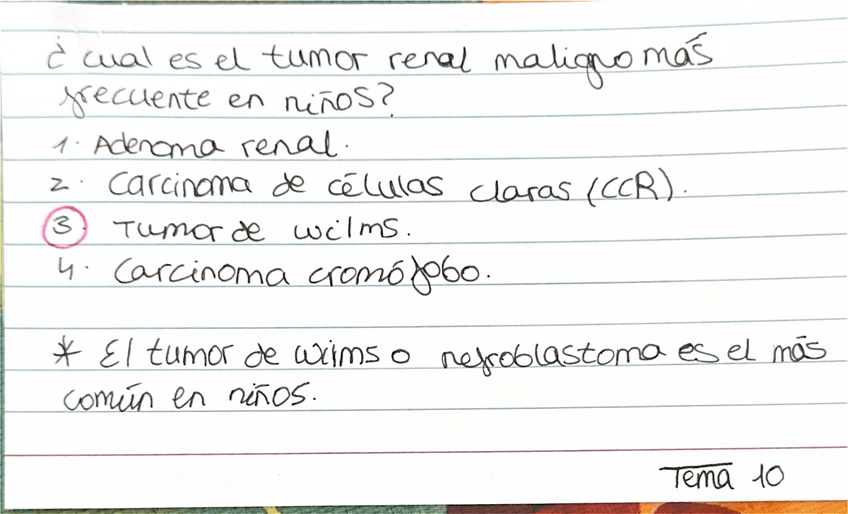 ¿ cual es el tumor renal maligno más
frecuente en niños?
1. Adenoma renal.
2. Carcinoma de células claras (CCR).
3. Tumor de wilms.
4. Carcinoma cromófobo.
* El tumor de wilms o nefroblastoma es el más
común en niños.
Tema 10